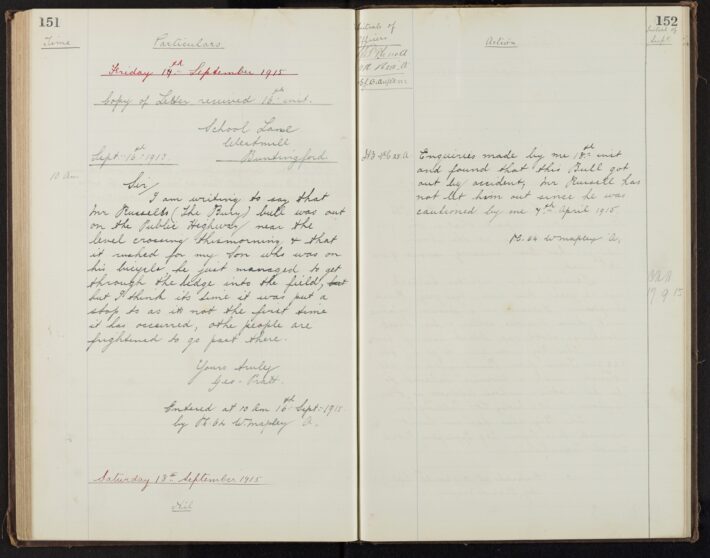 151
Time
Particulars
Friday 17th September 1915
Copy of Letter received 16th inst.
School Lane
Westmill
Buntingford
Sept. 16th 1915.
10 Am
Sir/
I am writing to say that
Mr Russells (The Bury) bull was out
on the Public Highway near the
level crossing this morning, & that
it rushed for my Son who was on
his bicycle, he just managed to get
through the hedge into the field,
but I think its time it was put a
stop to as its not the first time
it has occurred, othe people are
frightened to go past there.
Yours truly
Geo. Pratt.
Entered at 10 Am 16th Sept. 1915
by Pc. 64 W. mapley A.
Saturday 18th September 1915
Nil
152
Initials of
Officers
Action
Initial of
Supt.
Enquiries made by me inst
and found that this Bull got
out by accident, Mr Russell has
not let him out since he was
cautioned by me 7th April 1915
Pc. 64 W mapley A.
17 9 15